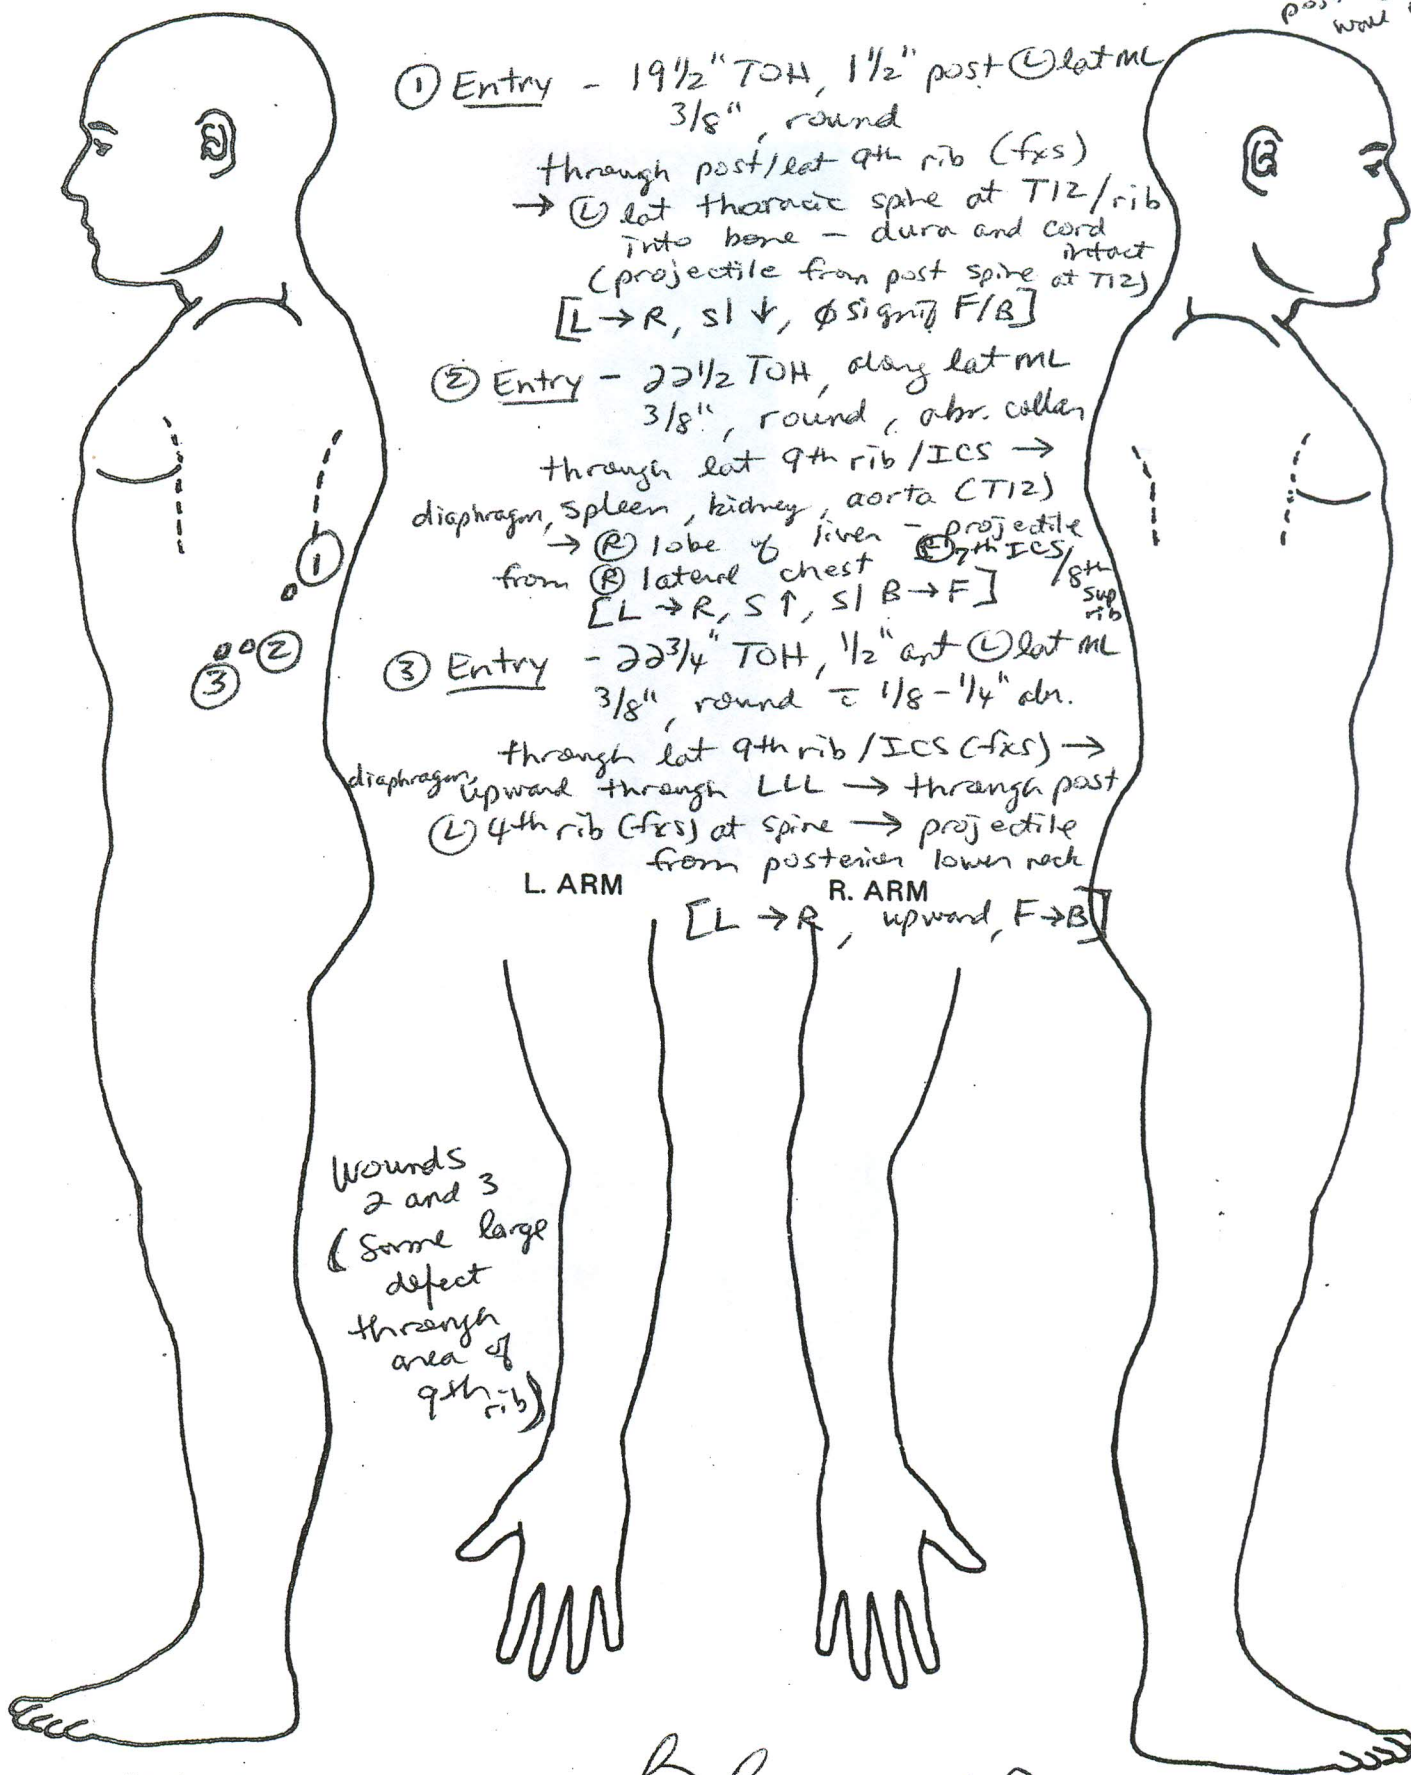 ① Entry - 19 1/2" TOH, 1 1/2" post Ⓛ lat ML
3/8", round
through post/lat 9th rib (fxs)
→ Ⓛ lat thoracic spine at T12/rib
into bone - dura and cord
intact
(projectile from post spine at T12)
[L → R, sl ↓, ø signif F/B]
② Entry - 22 1/2 TOH, along lat ML
3/8", round, abr. collar
through lat 9th rib/ICS →
diaphragm, spleen, kidney, aorta (T12)
→ Ⓡ lobe of liver - projectile
from Ⓡ lateral chest 7th ICS/8th
sup
rib
[L → R, S ↑, sl B → F]
③ Entry - 22 3/4" TOH, 1/2" ant Ⓛ lat ML
3/8", round c̄ 1/8 - 1/4" abr.
through lat 9th rib/ICS (fxs) →
diaphragm, upward through LLL → through post
Ⓛ 4th rib (fxs) at spine → projectile
from posterior lower neck
[L → R, upward, F → B]
①
②
③
L. ARM
R. ARM
Wounds
2 and 3
(Same large
defect
through
area of
9th rib)